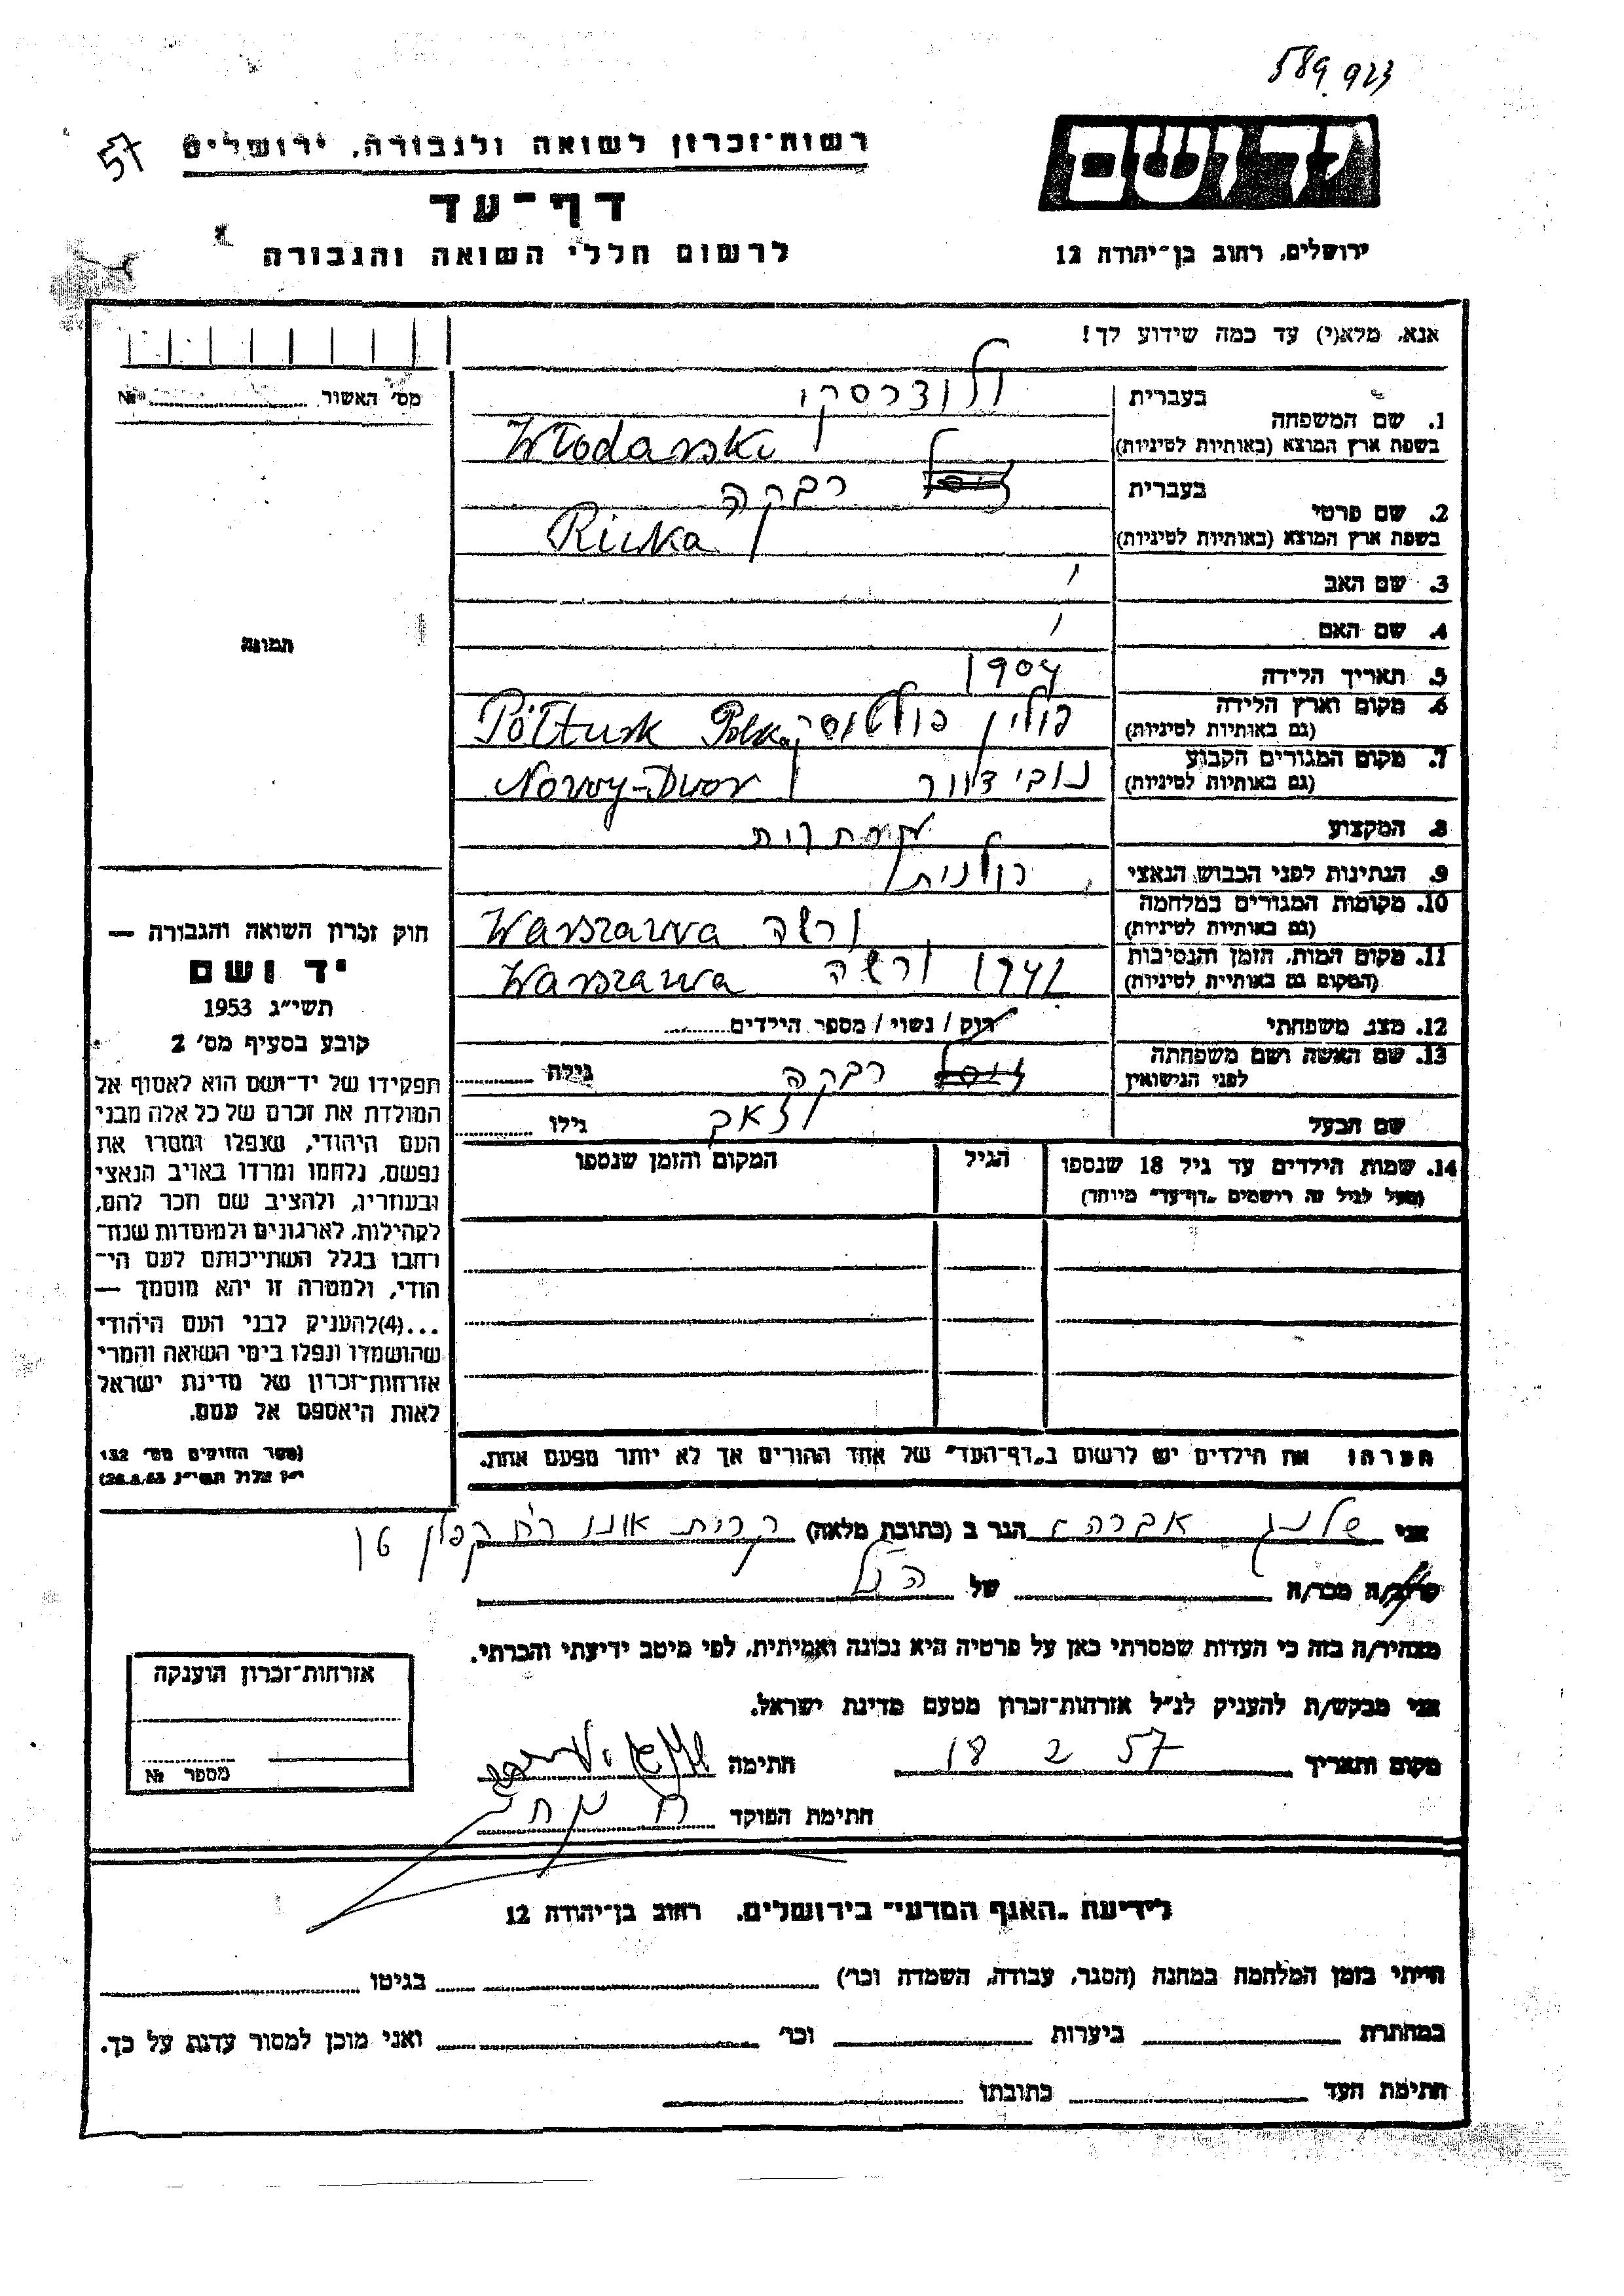 589.923
57
רשות־זכרון לשואה ולגבורה, ירושלים
יד ושם
דף־עד
לרשום חללי השואה והגבורה
ירושלים, רחוב בן־יהודה 12
אנא, מלא(י) עד כמה שידוע לך!
מס' האשור №
בעברית
ולודרסקי
1. שם המשפחה
בשפת ארץ המוצא (באותיות לטיניות)
Włodarski
בעברית
רבקה
2. שם פרטי
בשפת ארץ המוצא (באותיות לטיניות)
Riwka
3. שם האב
4. שם האם
תמונה
5. תאריך הלידה
1904
6. מקום וארץ הלידה
(גם באותיות לטיניות)
פולין פולטוסק Pöltusk Polska
7. מקום המגורים הקבוע
(גם באותיות לטיניות)
נובי דוור Nowy-Dwor
8. המקצוע
9. הנתינות לפני הכבוש הנאצי
פולנית
10. מקומות המגורים במלחמה
(גם באותיות לטיניות)
ורשה Warszawa
11. מקום המות, הזמן והנסיבות
(המקום גם באותיות לטיניות)
1941 ורשה Warszawa
12. מצב משפחתי
רוק / נשוי / מספר הילדים
13. שם האשה ושם משפחתה
לפני הנישואין
רבקה
גילה
שם הבעל
זאב
גילו
14. שמות הילדים עד גיל 18 שנספו
(מעל לגיל זה רושמים „דף־עד" מיוחד)
הגיל
המקום והזמן שנספו
חוק זכרון השואה והגבורה —
יד ושם
תשי"ג 1953
קובע בסעיף מס' 2
תפקידו של יד־ושם הוא לאסוף אל
המולדת את זכרם של כל אלה מבני
העם היהודי, שנפלו ומסרו את
נפשם, נלחמו ומרדו באויב הנאצי
ובעוזריו, ולהציב שם וזכר להם,
לקהילות, לארגונים ולמוסדות שנח־
רבו בגלל השתייכותם לעם הי־
הודי, ולמטרה זו יהא מוסמך —
...(4)להעניק לבני העם היהודי
שהושמדו ונפלו בימי השואה והמרי
אזרחות־זכרון של מדינת ישראל
לאות היאספם אל עמם.
(ספר החוקים מס' 132
י"ז אלול תשי"ג 28.8.53)
הערה: את הילדים יש לרשום ב„דף־העד" של אחד ההורים אך לא יותר מפעם אחת.
אני שלנג אברהם הגר ב (כתובת מלאה) קרית אונו רח קפלן
קרוב/ה מכר/ה של הנ"ל
מצהיר/ה בזה כי העדות שמסרתי כאן על פרטיה היא נכונה ואמיתית, לפי מיטב ידיעתי והכרתי.
אני מבקש/ת להעניק לנ"ל אזרחות־זכרון מטעם מדינת ישראל.
מקום ותאריך 18 2 57 חתימה
חתימת הפוקד
אזרחות־זכרון הוענקה
מספר №
לידיעת „האגף המדעי" בירושלים, רחוב בן־יהודה 12
הייתי בזמן המלחמה במחנה (הסגר, עבודה, השמדה וכו') בגיטו
במחתרת ביערות וכו' ואני מוכן למסור עדות על כך.
חתימת העד כתובתו